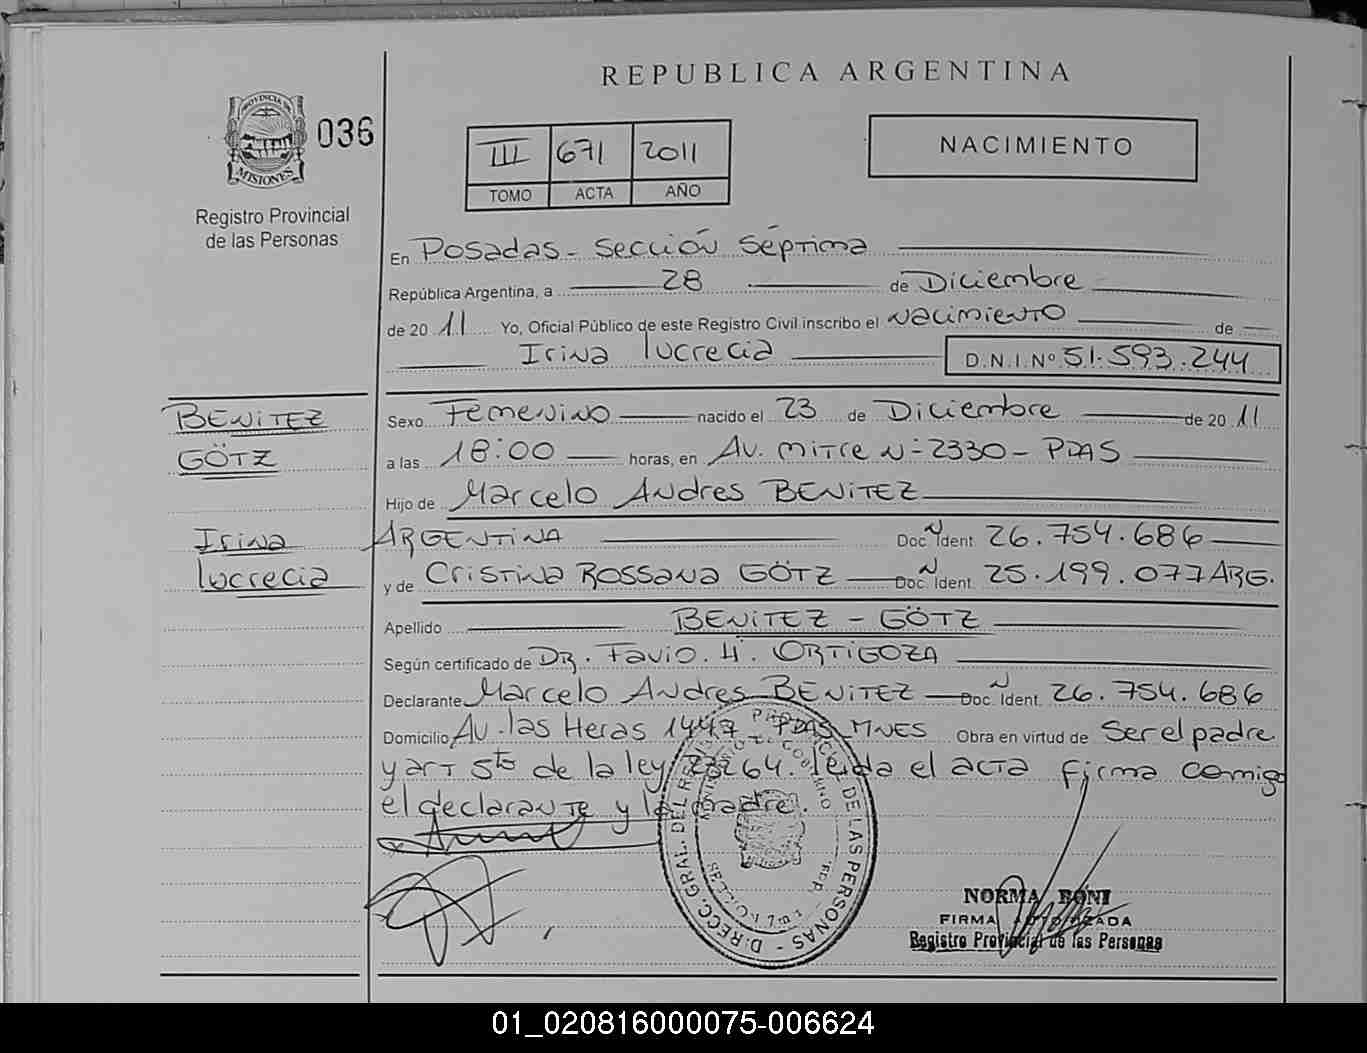 REPUBLICA ARGENTINA
PROVINCIA DE
MISIONES
036
Registro Provincial
de las Personas
III 671 2011
TOMO ACTA AÑO
NACIMIENTO
En Posadas - Sección Séptima
República Argentina, a 28 de Diciembre
de 20 11 Yo, Oficial Público de este Registro Civil inscribo el Nacimiento de
Irina Lucrecia D.N.I.Nº 51.593.244
BENITEZ
GÖTZ
Irina
Lucrecia
Sexo Femenino nacido el 23 de Diciembre de 20 11
a las 18:00 horas, en Av. Mitre Nº 2330 - PDAS
Hijo de Marcelo Andres BENITEZ
ARGENTINA Doc. Ident. N 26.754.686
y de Cristina Rossana GÖTZ Doc. Ident. N 25.199.077 ARG.
Apellido BENITEZ - GÖTZ
Según certificado de DR. Favio. H. ORTIGOZA
Declarante Marcelo Andres BENITEZ Doc. Ident. N 26.754.686
Domicilio Av. las Heras 1447 PDAS MNES Obra en virtud de Ser el padre
y art 5to de la ley 23264. leida el acta firma comigo
el declarante y la madre.
DIRECC. GRAL. DEL REGISTRO PROVINCIAL DE LAS PERSONAS
NORMA BONI
FIRMA AUTORIZADA
Registro Provincial de las Personas
01_020816000075-006624